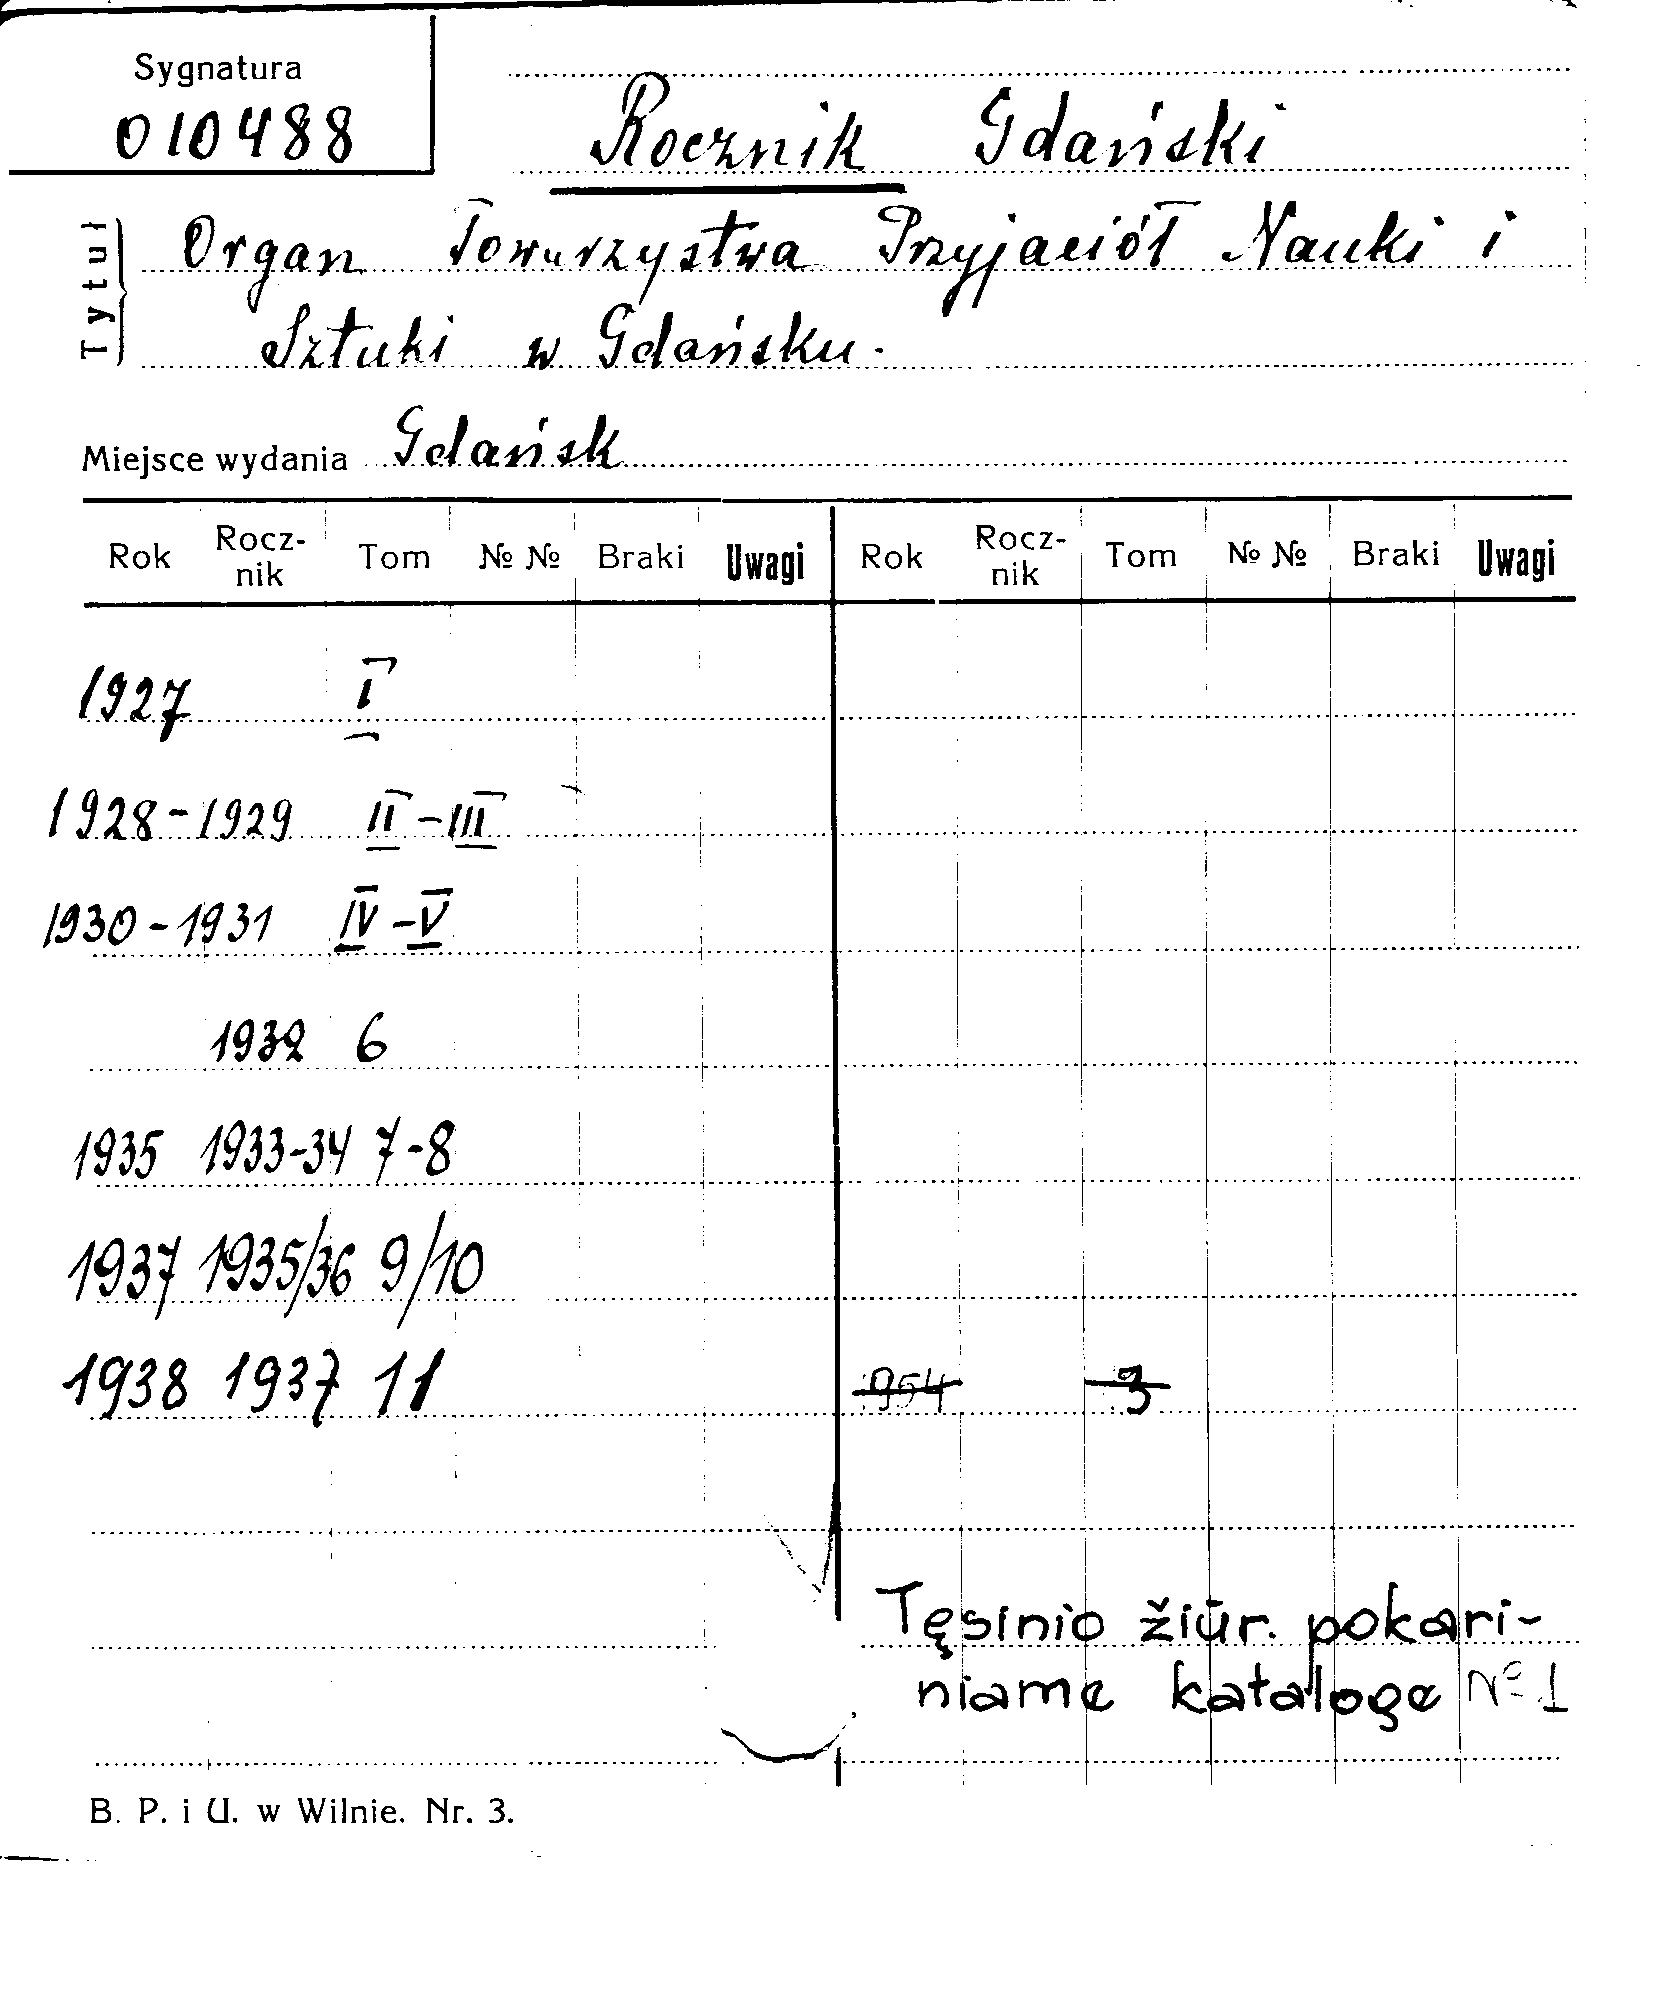 Sygnatura
010488
Rocznik Gdański
Tytuł
Organ Towarzystwa Przyjaciół Nauki i
Sztuki w Gdańsku.
Miejsce wydania Gdańsk
Rok Rocz-nik Tom № № Braki Uwagi Rok Rocz-nik Tom № № Braki Uwagi
1927 I
1928-1929 II-III
1930-1931 IV-V
1932 6
1935 1933-34 7-8
1937 1935/36 9/10
1938 1937 11 954 3
Tęsinio žiūr. pokari-
niame kataloge № 1
B. P. i U. w Wilnie. Nr. 3.